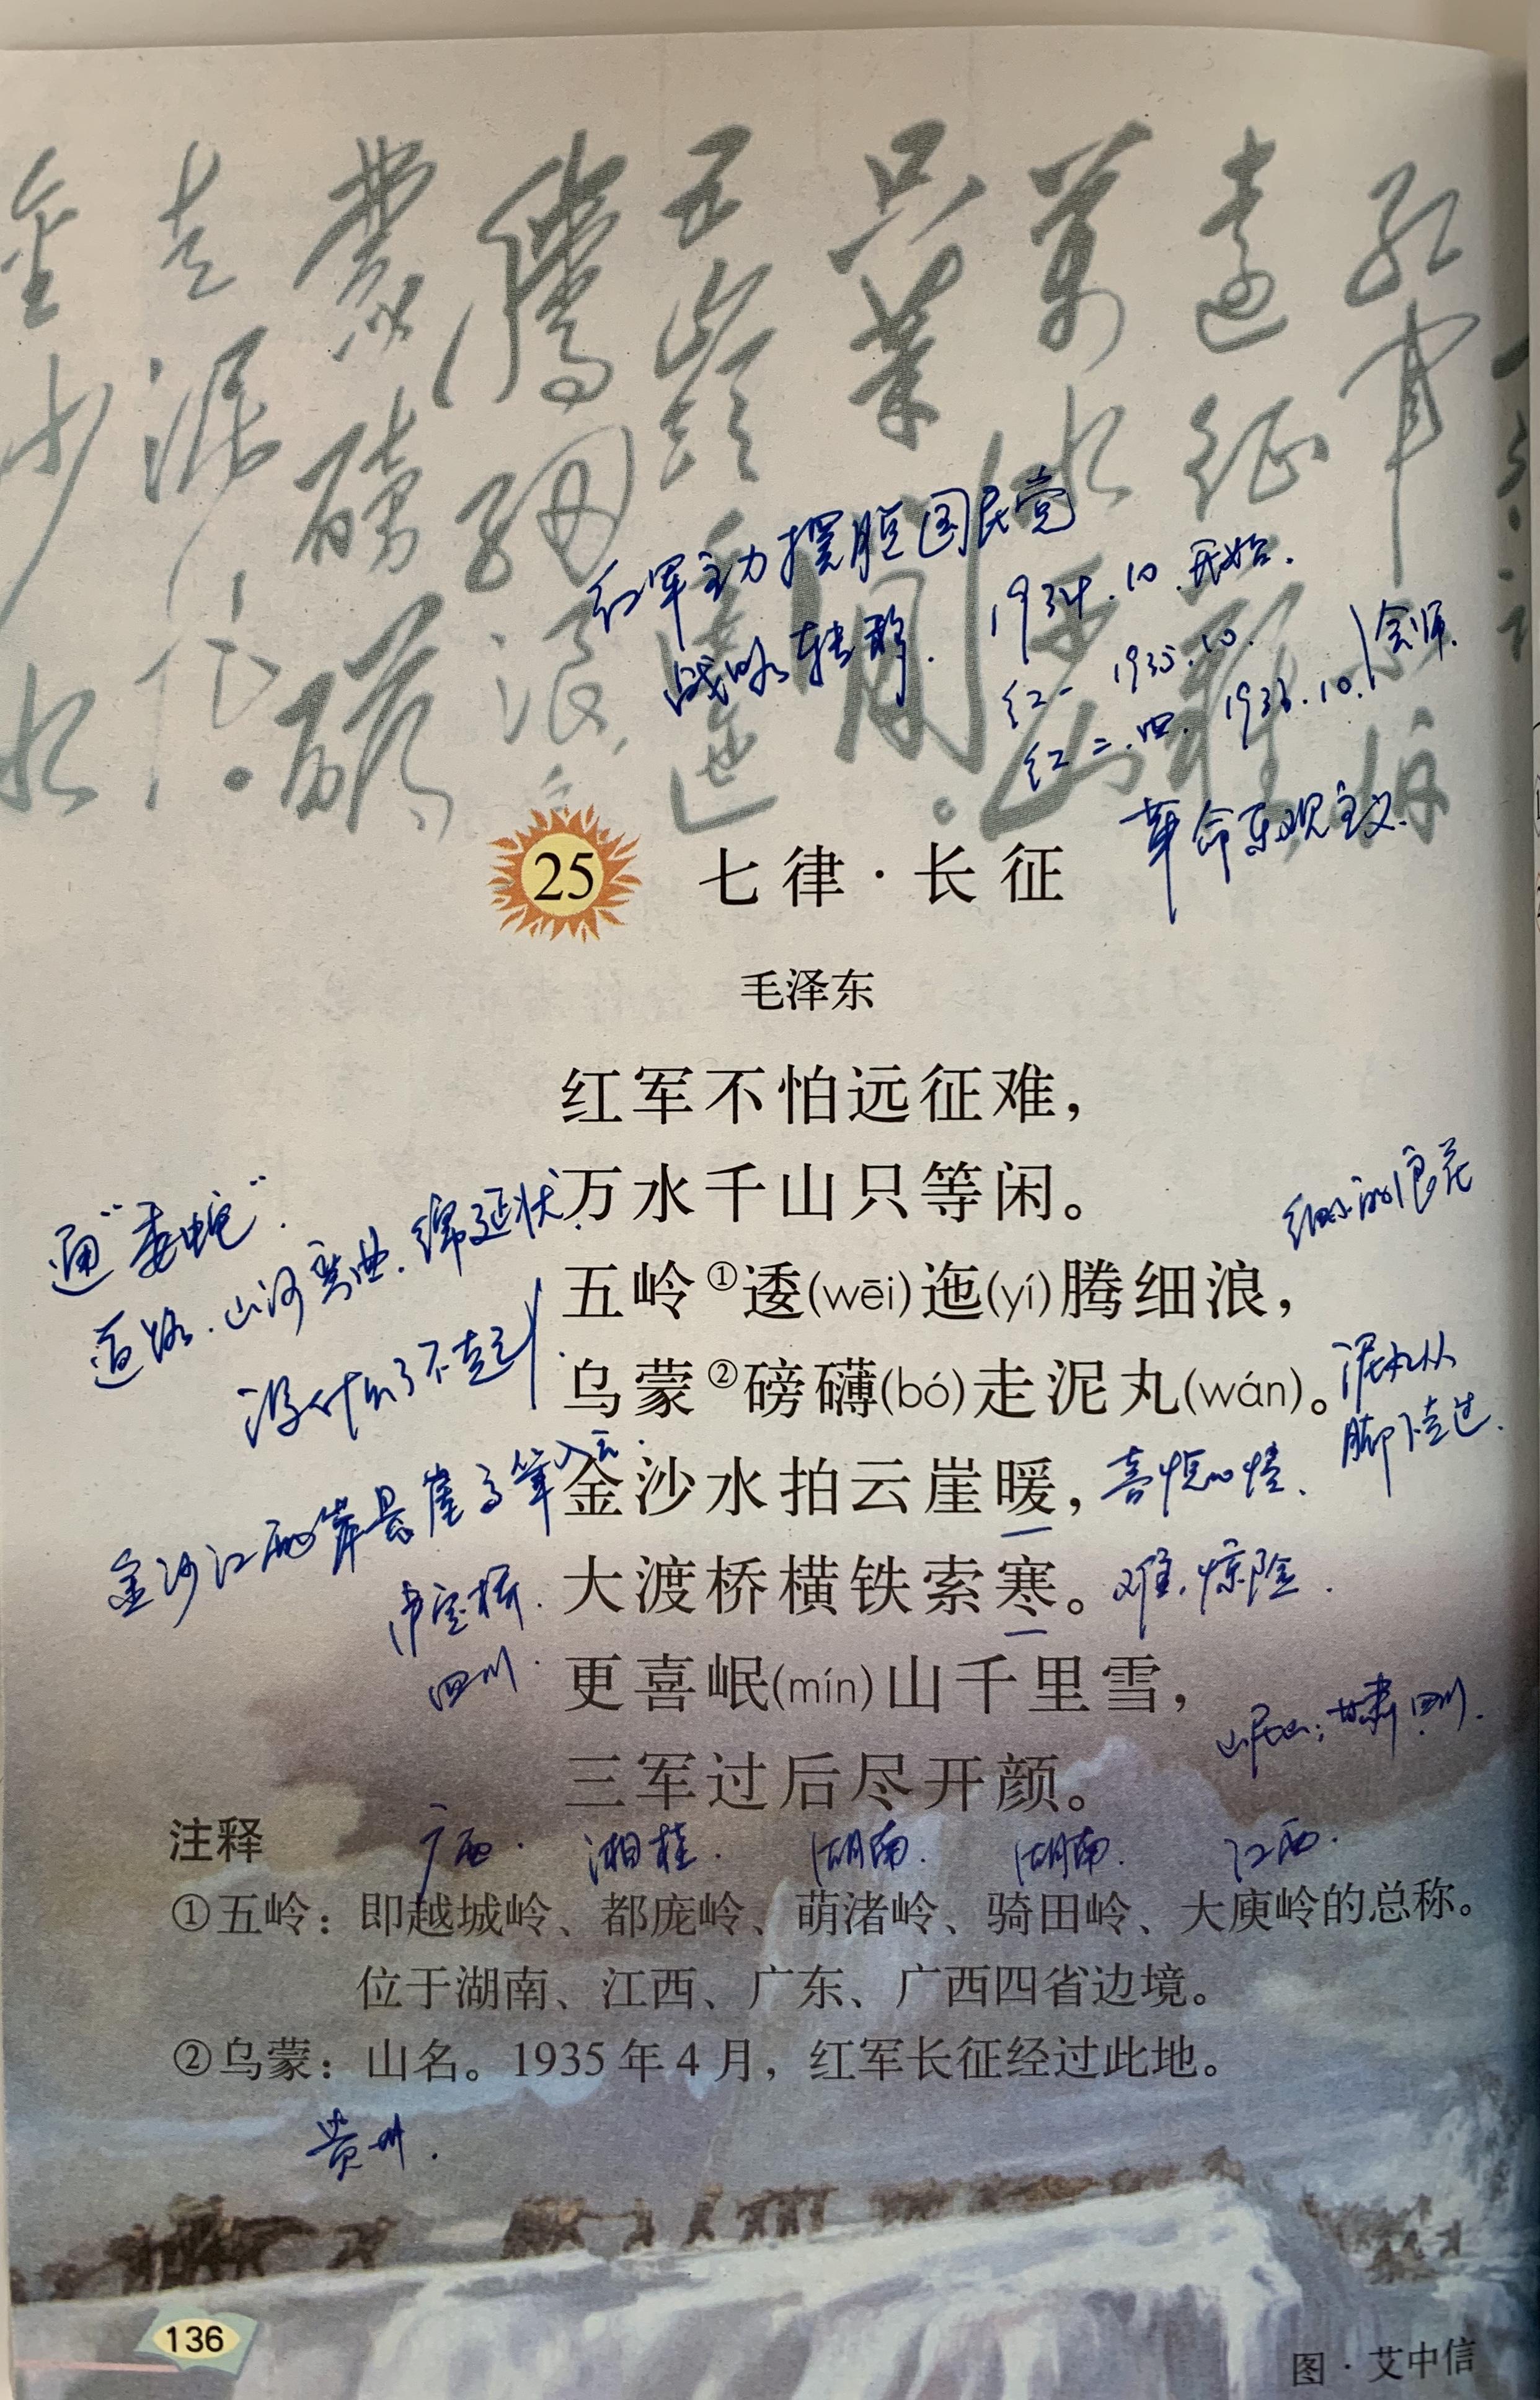 红军主力摆脱国民党
战略转移.
1934.10.开始.
红一 1935.10.
红二.四. 1936.10. 会师.
革命乐观主义.
25 七律·长征
毛泽东
红军不怕远征难，
万水千山只等闲。
通“委蛇”.
道路.山河弯曲.绵延状.
细小的浪花
五岭①逶(wēi)迤(yí)腾细浪，
没什么了不起
乌蒙②磅礴(bó)走泥丸(wán)。
泥丸从
脚下走过.
金沙江两岸悬崖高耸入云.
金沙水拍云崖暖，
喜悦心情、
泸定桥.
四川.
大渡桥横铁索寒。
难,惊险.
更喜岷(mín)山千里雪，
岷山:甘肃.四川.
三军过后尽开颜。
注释
广西. 湘桂. 湖南. 湖南. 江西.
①五岭：即越城岭、都庞岭、萌渚岭、骑田岭、大庾岭的总称。
位于湖南、江西、广东、广西四省边境。
②乌蒙：山名。1935年4月，红军长征经过此地。
贵州.
136
图·艾中信